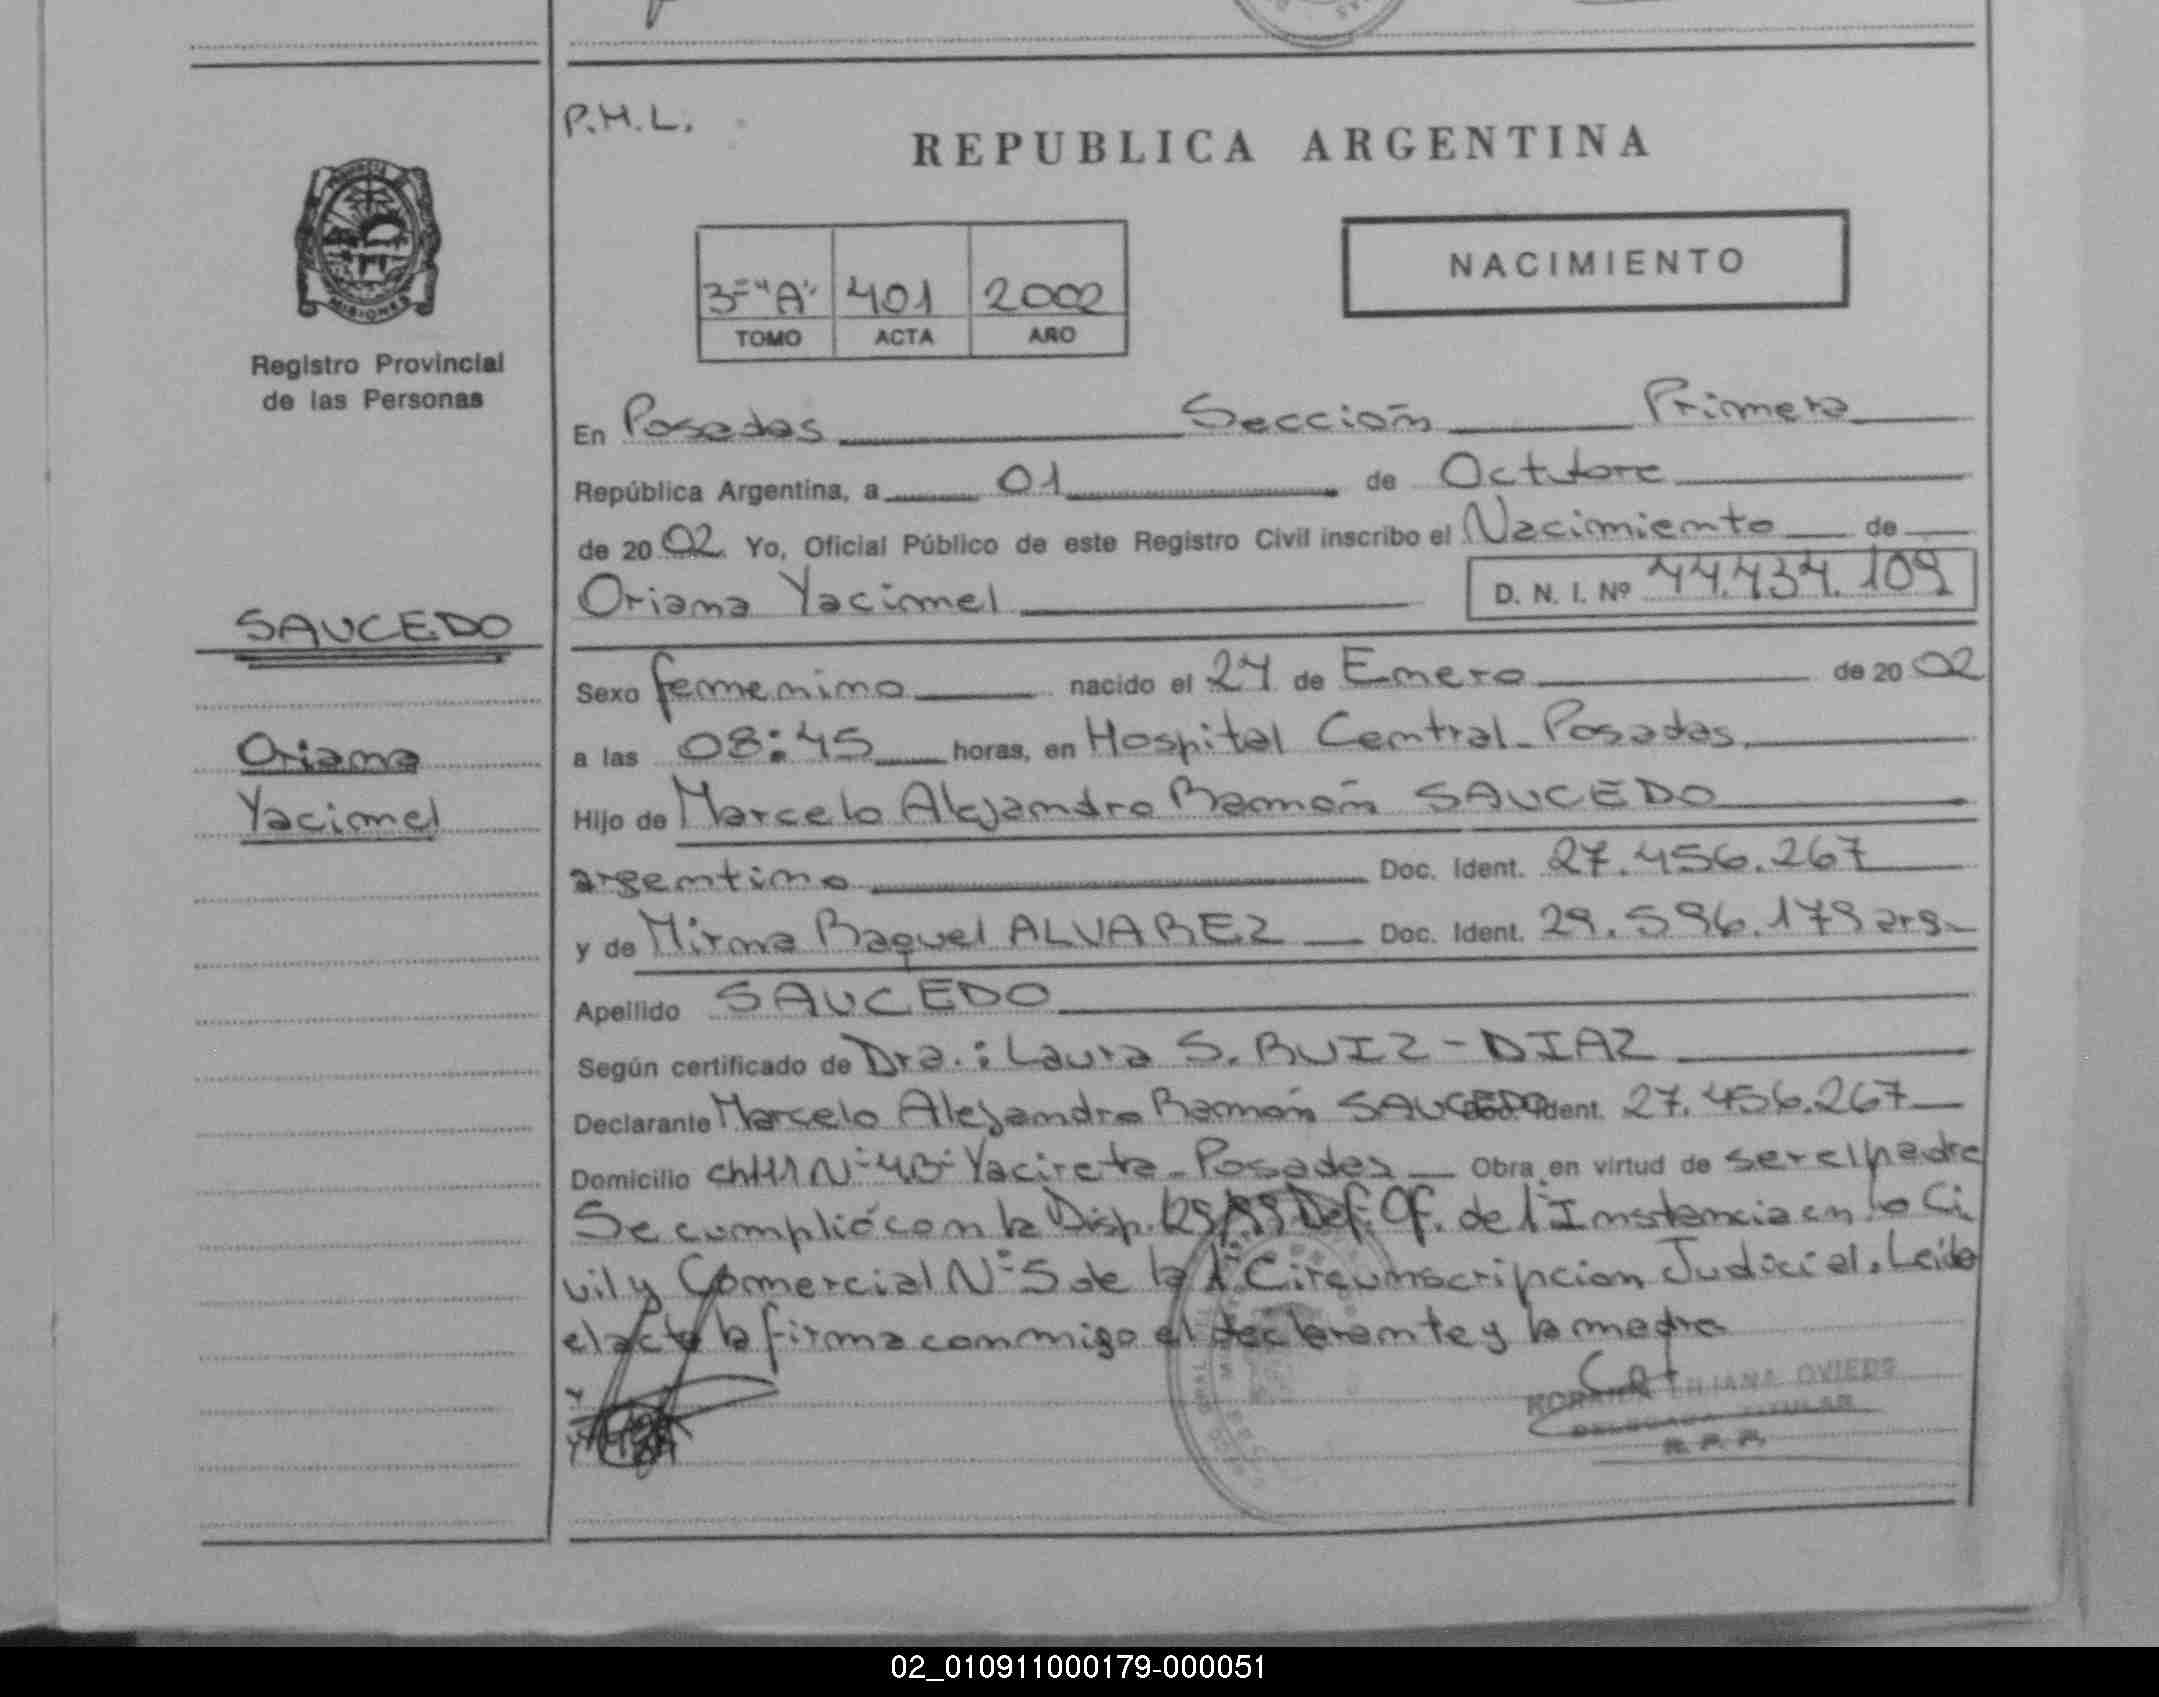 P.M.L.
REPUBLICA ARGENTINA
PROVINCIA
MISIONES
Registro Provincial
de las Personas
3º "A" 401 2002
TOMO ACTA AÑO
NACIMIENTO
SAUCEDO
Oriana
Yacimel
En Posadas Sección Primera
República Argentina, a 01 de Octubre
de 2002 Yo, Oficial Público de este Registro Civil inscribo el Nacimiento de
Oriana Yacimel D. N. I. Nº 44.434.109
Sexo femenino nacido el 24 de Enero de 2002
a las 08:45 horas, en Hospital Central - Posadas.
Hijo de Marcelo Alejandro Ramón SAUCEDO
argentino Doc. Ident. 27.456.267
y de Mirna Raquel ALVAREZ Doc. Ident. 29.596.179 arg.
Apellido SAUCEDO
Según certificado de Dra.: Laura S. RUIZ-DIAZ
Declarante Marcelo Alejandro Ramón SAUCEDO Ident. 27.456.267
Domicilio ch111 Nº 4B Yacireta - Posadas Obra en virtud de ser el padre
Se cumplió con la Disp. Def. Of. de 1º Instancia en lo Ci
vil y Comercial Nº 5 de la 1º Circunscripcion Judicial. Leida
el acta la firma conmigo el declarante y la madre
LILIANA OVIEDO
TITULAR
R.P.P.
02_010911000179-000051